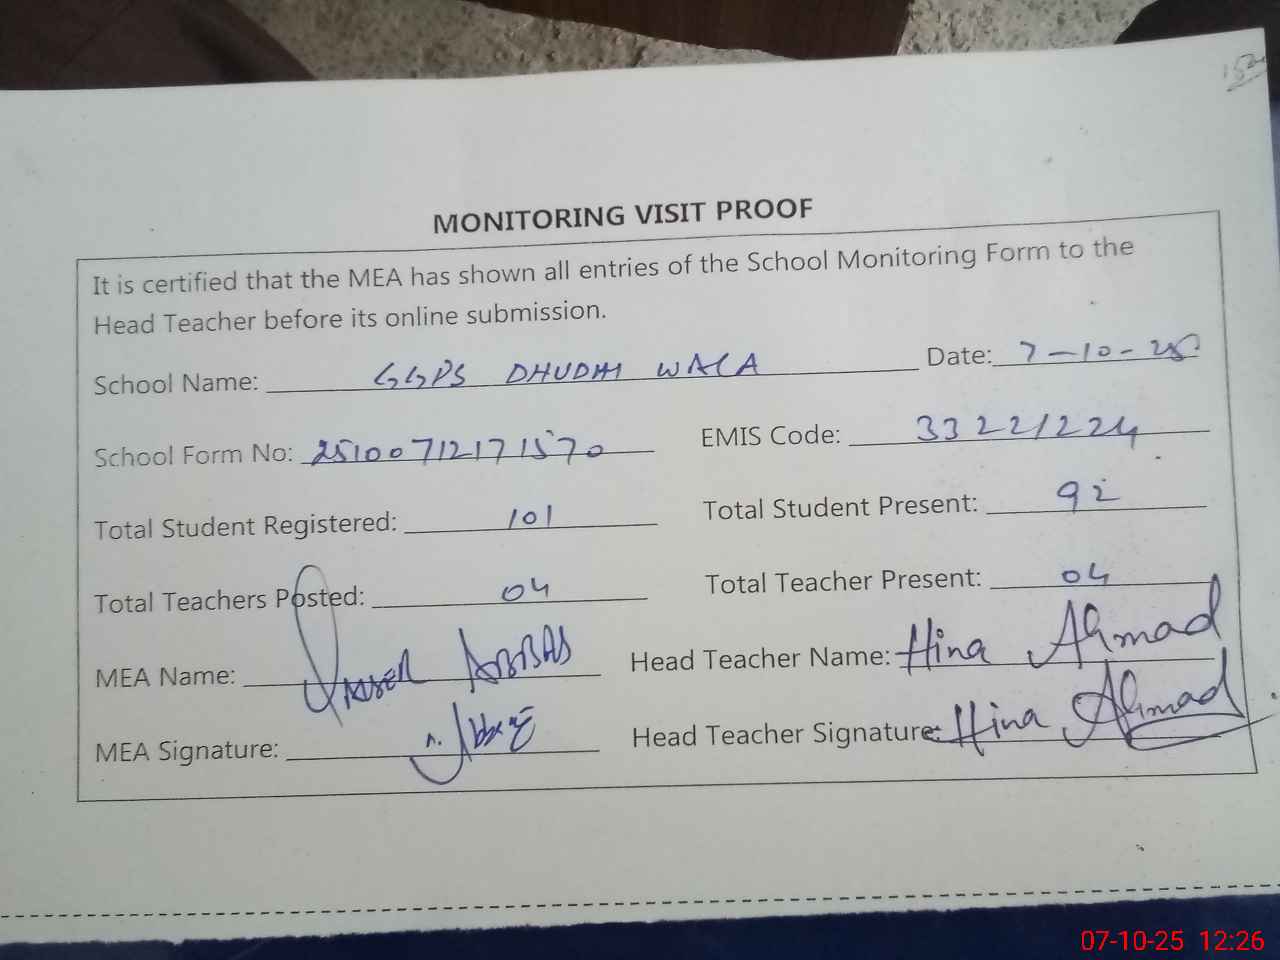 MONITORING VISIT PROOF
It is certified that the MEA has shown all entries of the School Monitoring Form to the
Head Teacher before its online submission.
School Name: GGPS DHUDHI WALA Date: 7-10-25
School Form No: 25100712171570 EMIS Code: 33221224
Total Student Registered: 101 Total Student Present: 92
Total Teachers Posted: 04 Total Teacher Present: 04
MEA Name: ABBAS Head Teacher Name: Hina Ahmad
MEA Signature: Head Teacher Signature: Hina Ahmad
07-10-25 12:26